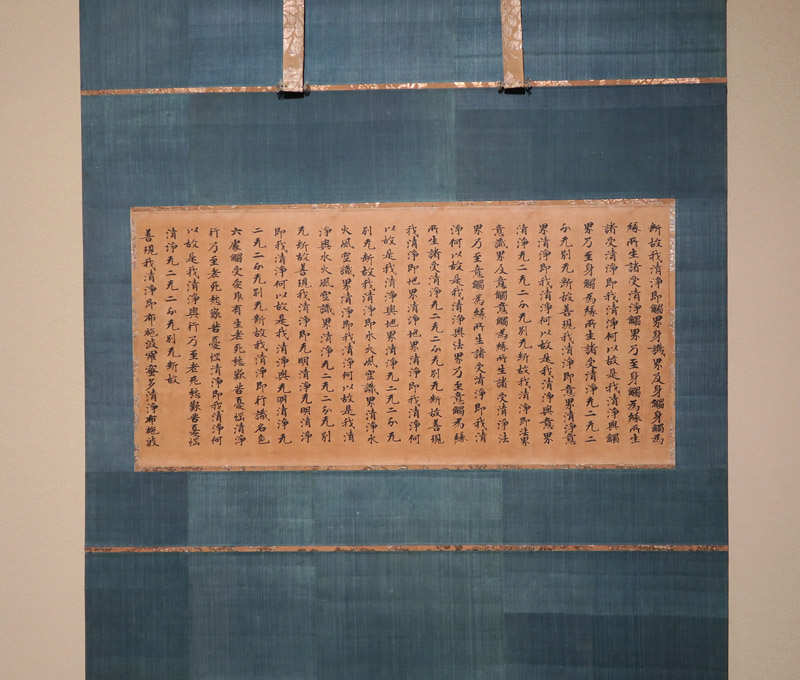 斷故我清淨即觸界身識界及身觸身觸為
緣所生諸受清淨觸界乃至身觸為緣所生
諸受清淨即我清淨何以故是我清淨與觸
界乃至身觸為緣所生諸受清淨无二无二
分无別无斷故善現我清淨即意界清淨意
界清淨即我清淨何以故是我清淨與意界
清淨无二无二分无別无斷故我清淨即法界
意識界及意觸意觸為緣所生諸受清淨法
界乃至意觸為緣所生諸受清淨即我清
淨何以故是我清淨與法界乃至意觸為緣
所生諸受清淨无二无二分无別无斷故善現
我清淨即地界清淨地界清淨即我清淨何
以故是我清淨與地界清淨无二无二分无
別无斷故我清淨即水火風空識界清淨水
火風空識界清淨即我清淨何以故是我清
淨與水火風空識界清淨无二无二分无別
无斷故善現我清淨即无明清淨无明清淨
即我清淨何以故是我清淨與无明清淨无
二无二分无別无斷故我清淨即行識名色
六處觸受愛取有生老死愁歎苦憂惱清淨
行乃至老死愁歎苦憂惱清淨即我清淨何
以故是我清淨與行乃至老死愁歎苦憂惱
清淨无二无二分无別无斷故
善現我清淨即布施波羅蜜多清淨布施波